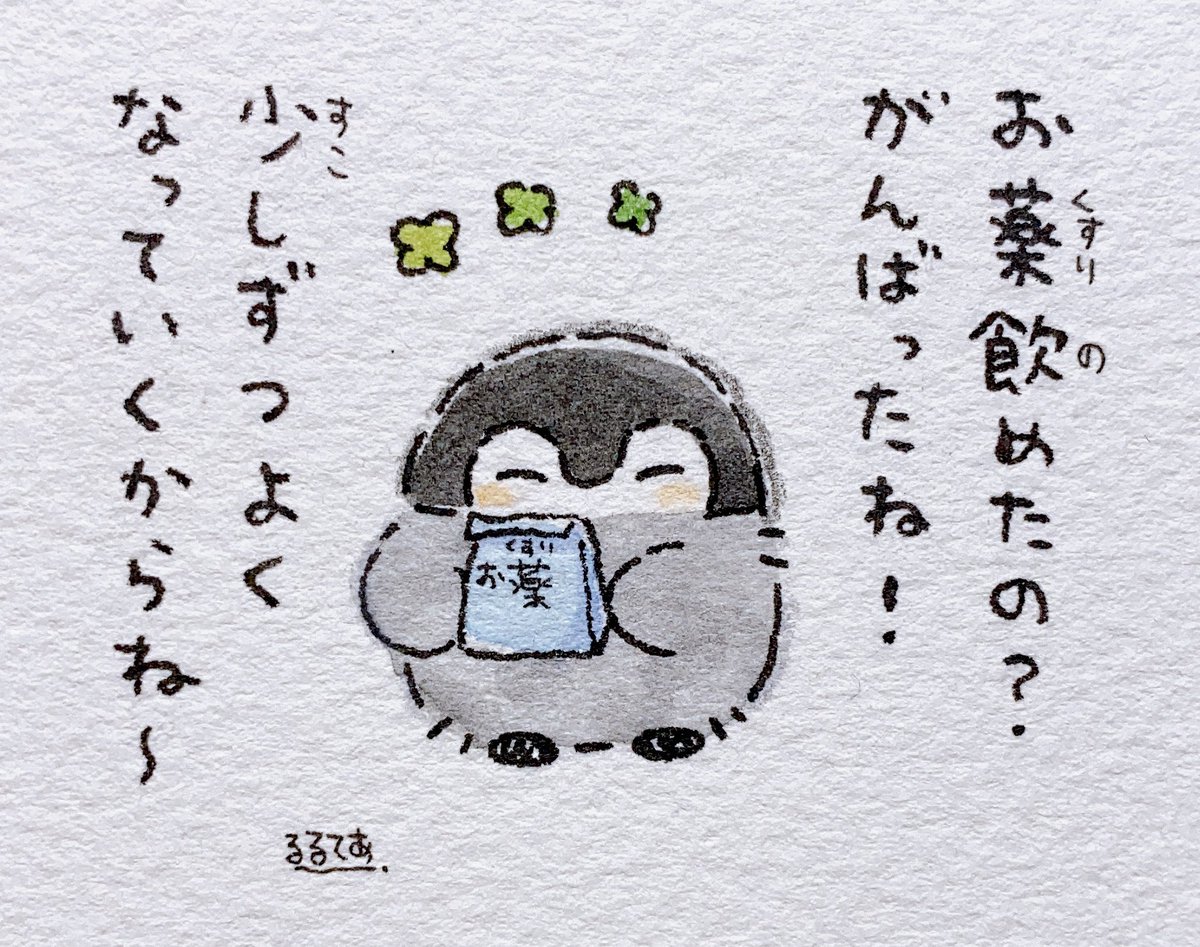 お薬飲めたの?
くすり
の
がんばったね!
少しずつよく
すこ
なっていくからね〜
くすり
お薬
るるてあ.